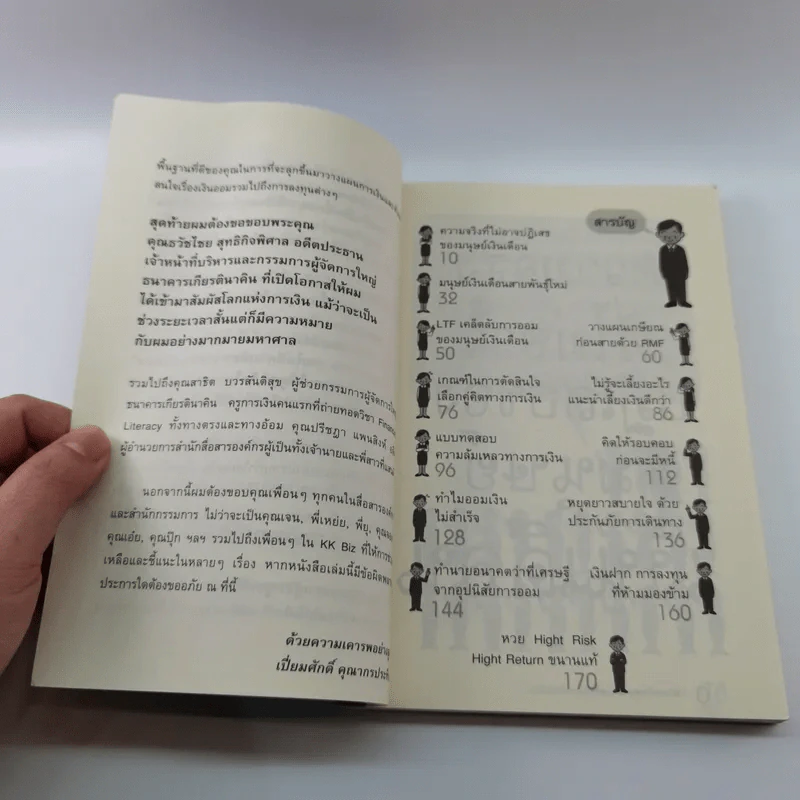 พื้นฐานที่ดีของคุณในการที่จะลุกขึ้นมาวางแผนการเงินและ
สนใจเรื่องเงินออมรวมไปถึงการลงทุนต่างๆ
สุดท้ายผมต้องขอขอบพระคุณ
คุณธวัชไชย สุทธิกิจพิศาล อดีตประธาน
เจ้าหน้าที่บริหารและกรรมการผู้จัดการใหญ่
ธนาคารเกียรตินาคิน ที่เปิดโอกาสให้ผม
ได้เข้ามาสัมผัสโลกแห่งการเงิน แม้ว่าจะเป็น
ช่วงระยะเวลาสั้นแต่ก็มีความหมาย
กับผมอย่างมากมายมหาศาล
รวมไปถึงคุณสาธิต บวรสันติสุข ผู้ช่วยกรรมการผู้จัดการใหญ่
ธนาคารเกียรตินาคิน ครูการเงินคนแรกที่ถ่ายทอดวิชา
Literacy ทั้งทางตรงและทางอ้อม คุณปรีชฎา แพนสิงห์
ผู้อำนวยการสำนักสื่อสารองค์กรผู้เป็นทั้งเจ้านายและพี่สาวที่
นอกจากนี้ผมต้องขอบคุณเพื่อนๆ ทุกคนในสื่อสารองค์
และสำนักกรรมการ ไม่ว่าจะเป็นคุณเจน, พี่เหย่ย, พี่ยุ,
คุณเอ้ย, คุณปุ๊ก ฯลฯ รวมไปถึงเพื่อนๆ ใน KK Biz ที่ให้การ
เหลือและชี้แนะในหลายๆ เรื่อง หากหนังสือเล่มนี้มีข้อผิด
ประการใดต้องขออภัย ณ ที่นี้
ด้วยความเคารพอย่าง
เปี่ยมศักดิ์ คุณากรประ
สารบัญ
ความจริงที่ไม่อาจปฏิเสธ
ของมนุษย์เงินเดือน
10
มนุษย์เงินเดือนสายพันธุ์ใหม่
32
LTF เคล็ดลับการออม
ของมนุษย์เงินเดือน
50
วางแผนเกษียณ
ก่อนสายด้วย RMF
60
เกณฑ์ในการตัดสินใจ
เลือกคู่คิดทางการเงิน
76
ไม่รู้จะเลี้ยงอะไร
แนะนำเลี้ยงเงินดีกว่า
86
แบบทดสอบ
ความล้มเหลวทางการเงิน
96
คิดให้รอบคอบ
ก่อนจะมีหนี้
112
ทำไมออมเงิน
ไม่สำเร็จ
128
หยุดยาวสบายใจ ด้วย
ประกันภัยการเดินทาง
136
ทำนายอนาคตว่าที่เศรษฐี
จากอุปนิสัยการออม
144
เงินฝาก การลงทุน
ที่ห้ามมองข้าม
160
หวย Hight Risk
Hight Return ขนานแท้
170